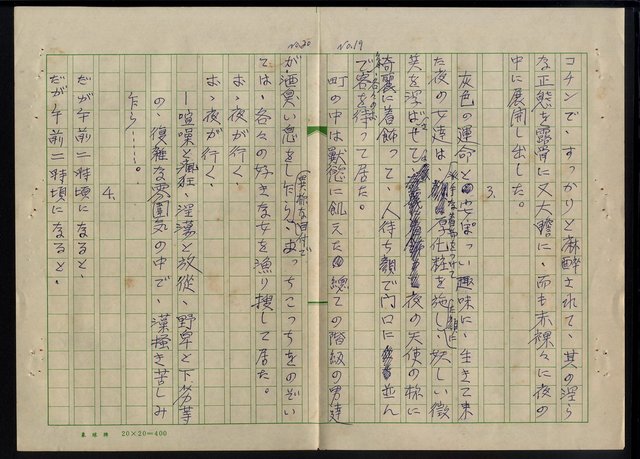 No.19
コチンで、すっかりと麻酔されて、其の淫ら
な正態を露骨に又大膽に、而も赤裸々に夜の
中に展開し出した。
3.
灰色の運命と安ぽい趣味に、生きて来
た夜の女達は、厚化粧を施し、妖しい微
笑を浮ばせて、夜の天使の様に
綺麗に着飾って、人待ち顔で門口に並ん
で客を待って居た。
町の中は獸慾に飢えた總ての階級の男達
No.20
が酒臭い息をしたら、(異様な目付で)あっちこっちをのぞい
ては、各々の好きな女を漁り捜して居た。
おゝ夜が行く、
おゝ夜が行く、
―喧噪と瘋狂、淫蕩と放從、野卑と下劣等
の、復雜な雰囲気の中で、藻掻き苦しみ
乍ら……。
4.
だが午前二時頃になると、
だが午前二時頃になると、
20×20=400